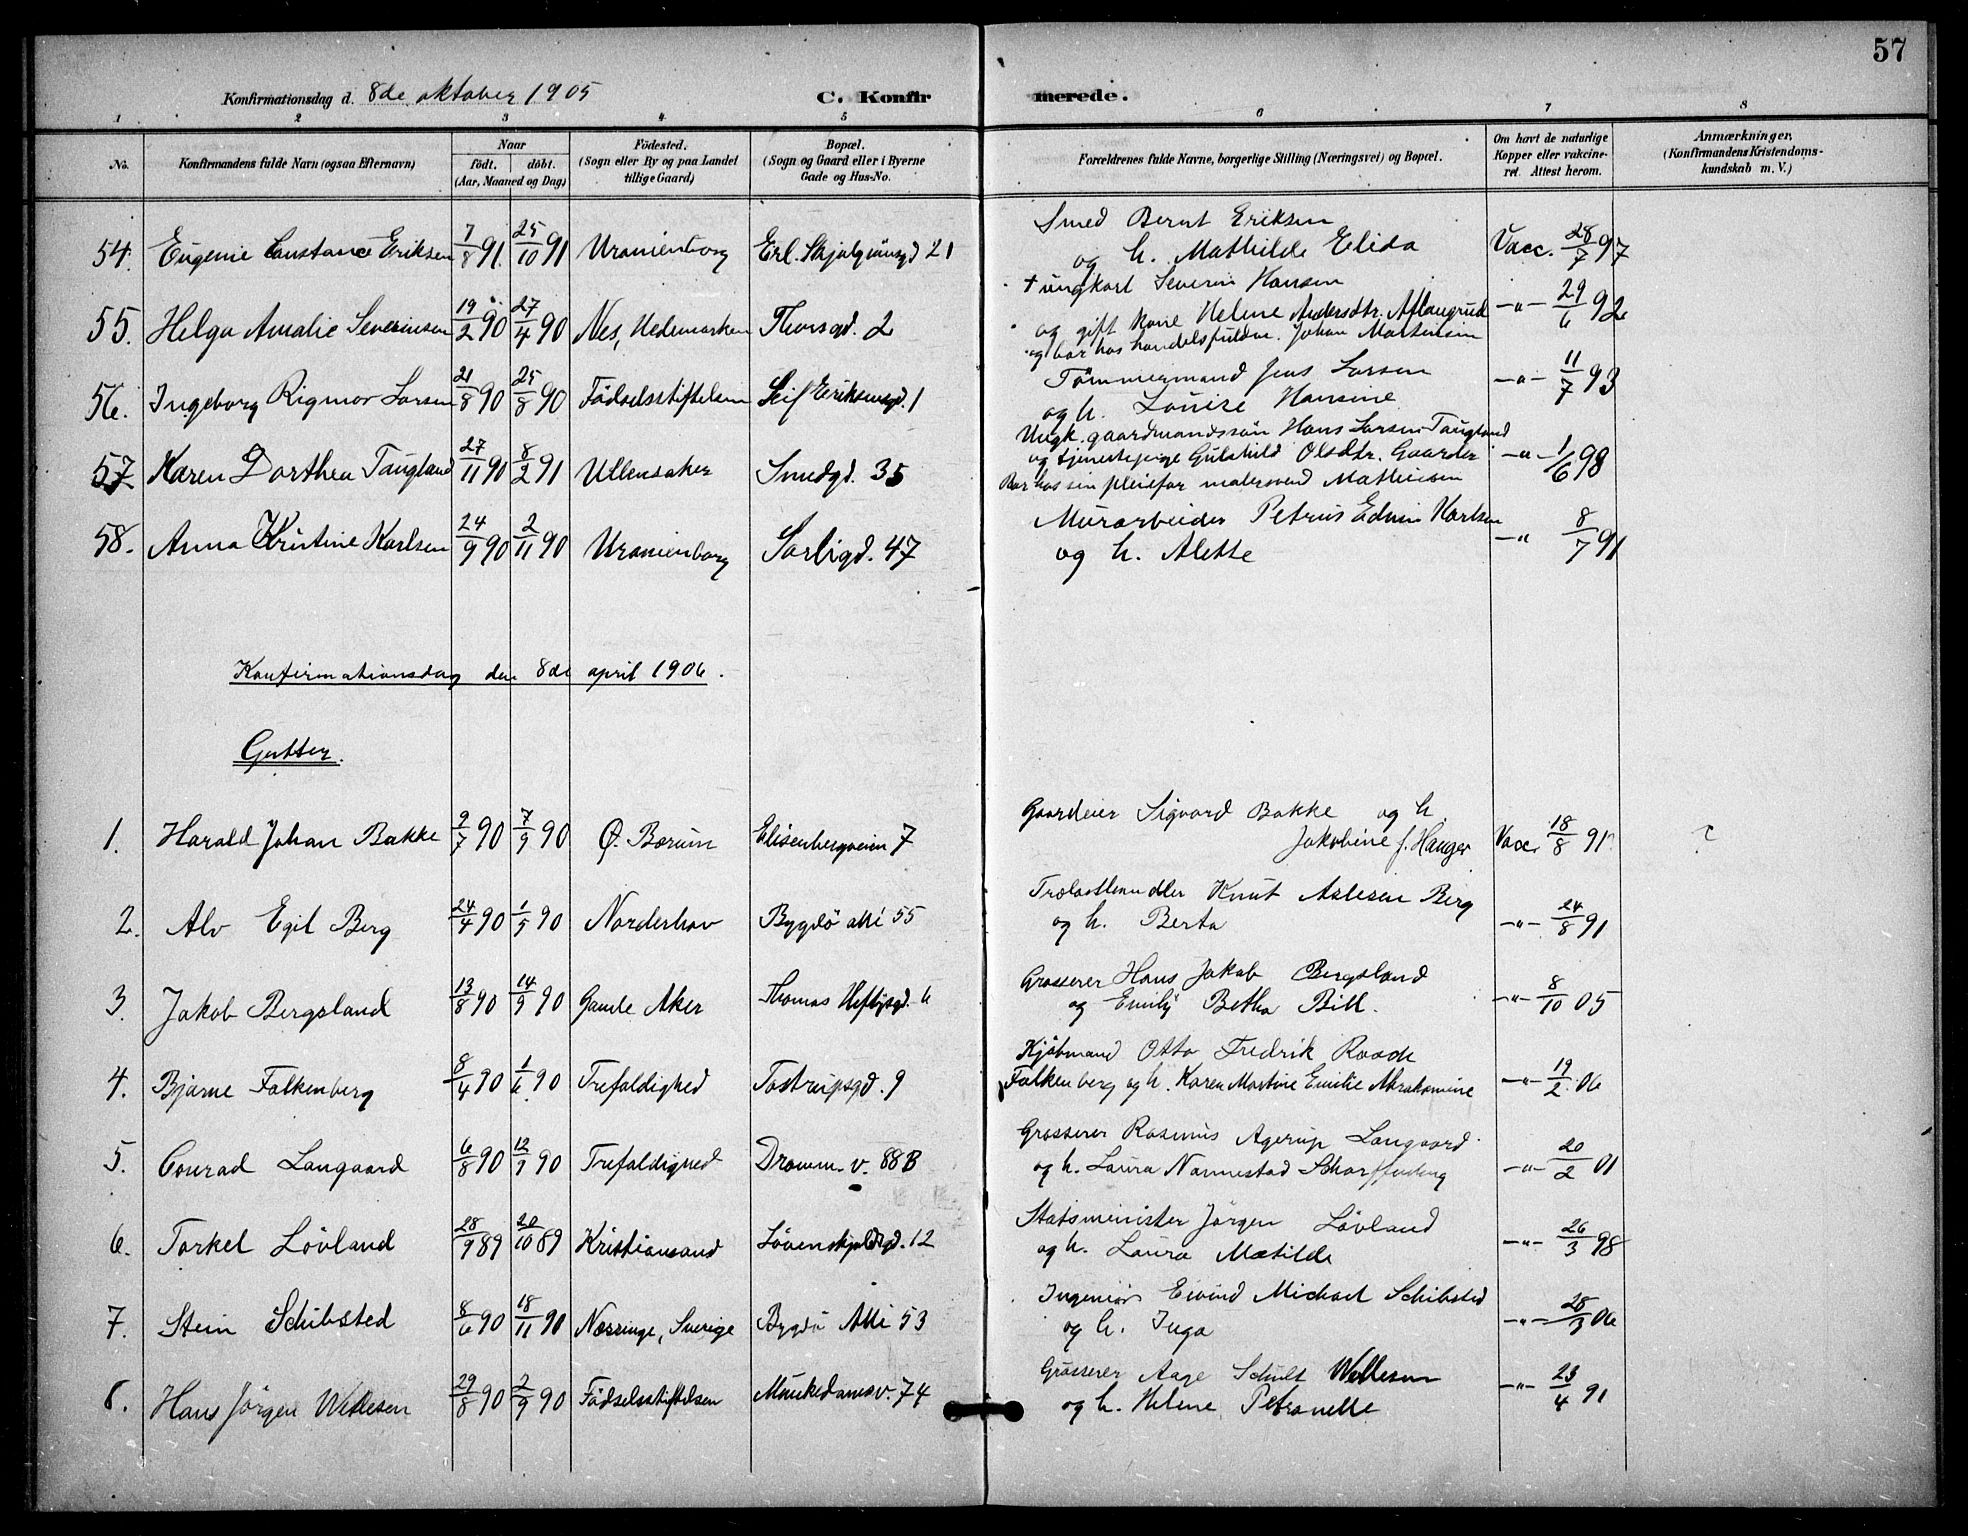 57
Konfirmationsdag d. 8de oktober 1905
C. Konfirmerede.
1 2 3 4 5 6 7 8
No. Konfirmandens fulde Navn (ogsaa Efternavn) Naar født. døbt. (Aar, Maaned og Dag) Födested. (Sogn eller By og paa Landet tillige Gaard) Bopæl. (Sogn og Gaard eller i Byerne Gade og Hus-No. Forældrenes fulde Navne, borgerlige Stilling (Næringsvei) og Bopæl. Om havt de naturlige Kopper eller vakcineret. Attest herom. Anmærkninger. (Konfirmandens Kristendomskundskab m. V.)
54. Eugenie Constance Eriksen 7/8 91. 25/10 91 Uranienborg Erl. Skjalgsønsgd 21 Smed Bernt Eriksen
og h. Mathilde Elida Vacc. 28/7 97
55. Helga Amalie Severinsen 19/2 90 27/4 90 Nes, Hedemarken Thorsgd. 2 + ungkarl Severin Hansen
og gift kone Helene Andersdtr. Aflangrud
og bor hos handelsfuldm. Johan Martinsen -"- 29/6 92
56. Ingeborg Rigmor Larsen 21/8 90 25/8 90 Födselsstiftelsen Leif Eriksensgd. 1 Tömmermand Jens Larsen
og h. Louise Hansine -"- 11/7 93
57. Karen Dorthea Taugland 27/11 90 8/2 91 Ullensaker Smedgd. 35 Ungk. gaardmandssön Hans Larsen Taugland
og tjenestepige Gulshild Olsdtr. Gaarder
Bor hos sin pleiefar malersvend Mathiesen -"- 1/6 98
58. Anna Kristine Karlsen 24/9 90 2/11 90 Uranienborg Sorligd. 47 Murarbeider Petrus Edvin Karlsen
og h. Alette -"- 8/7 91
Konfirmationsdag den 8de april 1906.
Gutter.
1. Harald Johan Bakke 9/7 90 7/9 90 Ø. Bærum Elisenbergveien 7 Gaardeier Sigvard Bakke og h.
Jakobine f. Hauger Vacc. 18/8 91
2. Alv Egil Berg 24/4 90 1/5 90 Norderhov Bygdö alle 55 Trælasthandler Knut Aslesen Berg
og h. Berta -"- 24/8 91
3. Jakob Bergsland 13/8 90 14/9 90 Gamle Aker Thomas Heftysgd. 6 Grosserer Hans Jakob Bergsland
og Emily Betha Bill. -"- 8/10 05
4. Bjarne Falkenberg 8/4 90 1/6 90 Trefoldighed Tostrupsgd. 9 Kjöbmand Otto Fredrik Roode
Falkenberg og h. Karen Martine Emilie Abrahamine -"- 19/2 06
5. Conrad Langaard 6/8 90 12/9 90 Trefoldighed Dramm. v. 88 B Grosserer Rasmus Agerup Langaard
og h. Laura Nannestad Scharffenberg -"- 20/2 01
6. Torkel Lövland 28/9 89 20/10 89 Kristiansand Lövenskjoldsgd. 12 Statsminister Jörgen Lövland
og h. Laura Matilde -"- 26/3 98
7. Stein Schibsted 8/6 90 18/11 90 Næssinge, Sverige Bygdö Alle 53 Ingeniör Eivind Michael Schibsted
og h. Inga -"- 28/3 06
8. Hans Jörgen Willesen 29/8 90 2/9 90 Födselsstiftelsen Munkedamsv. 74 Grosserer Aage Schult Willesen
og h. Helene Petronelle -"- 23/4 91